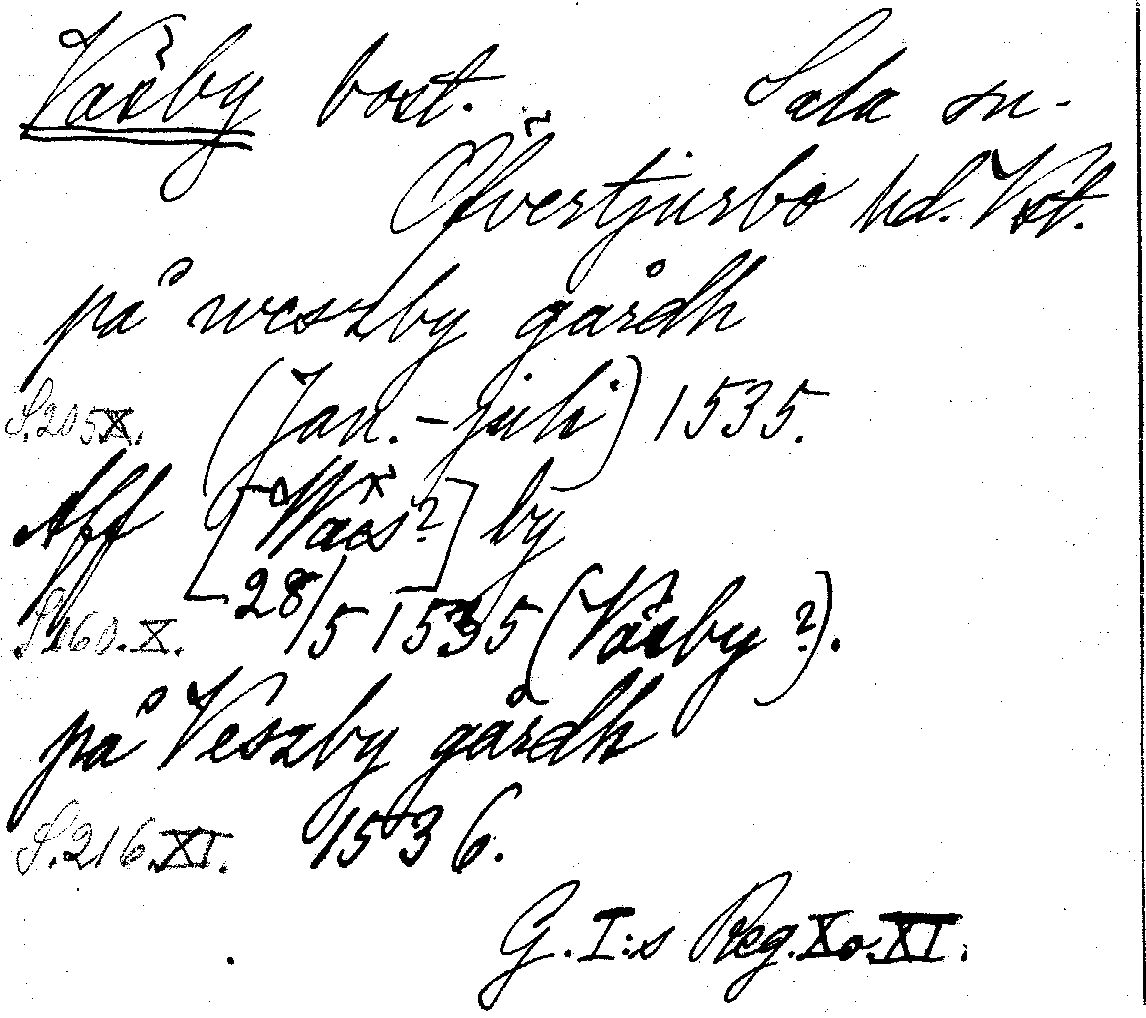 Väsby bost. Sala sn.
Öfvertjurbo hd. Vst.
på weszby gårdh
S. 205 X. (Jan. - juli) 1535.
Aff [Wäs?] by
S. 160. X. 28/5 1535 (Väsby?).
på Veszby gårdh
S. 216. XI. 1536.
G. I:s Reg. X o. XI.